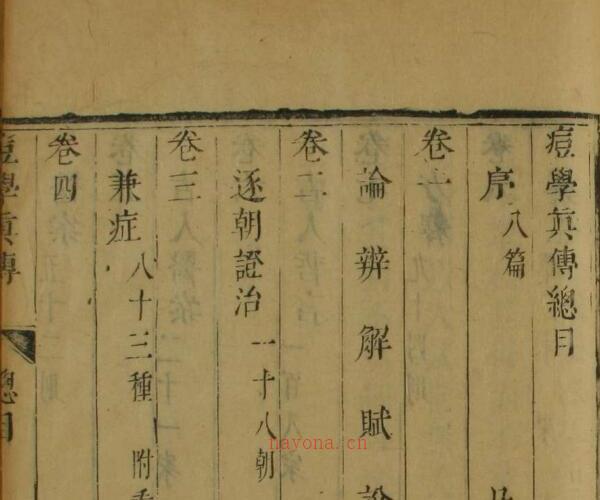 痘學眞傳總目
序 八篇
卷一
論辨解賦說
卷二
逐朝證治 一十八朝
卷三
兼症 八十三種 附
卷四
痘學眞傳 總目
nayona.cn